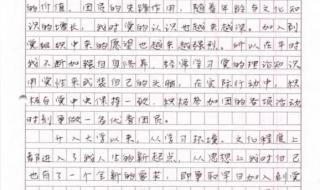 的价值。团员的先锋作用。随着年龄与文化知
识的增长，我对党的认识也越来越深。加入到
党组织中来的愿望也越来越强烈。所以在平时
我不断加强自身修养，随时学习党的理论知识
用党性来武装自己的头脑，在实际行动中，积
极向党中央保持一致，积极参加团的各项活动
时刻要做一名优秀团员。
升入大学以来，从学习环境、文化程度上
都进入了我人生的新起点，从思想上我对自己
也有了一个全新的要求，即争取早日加入到党